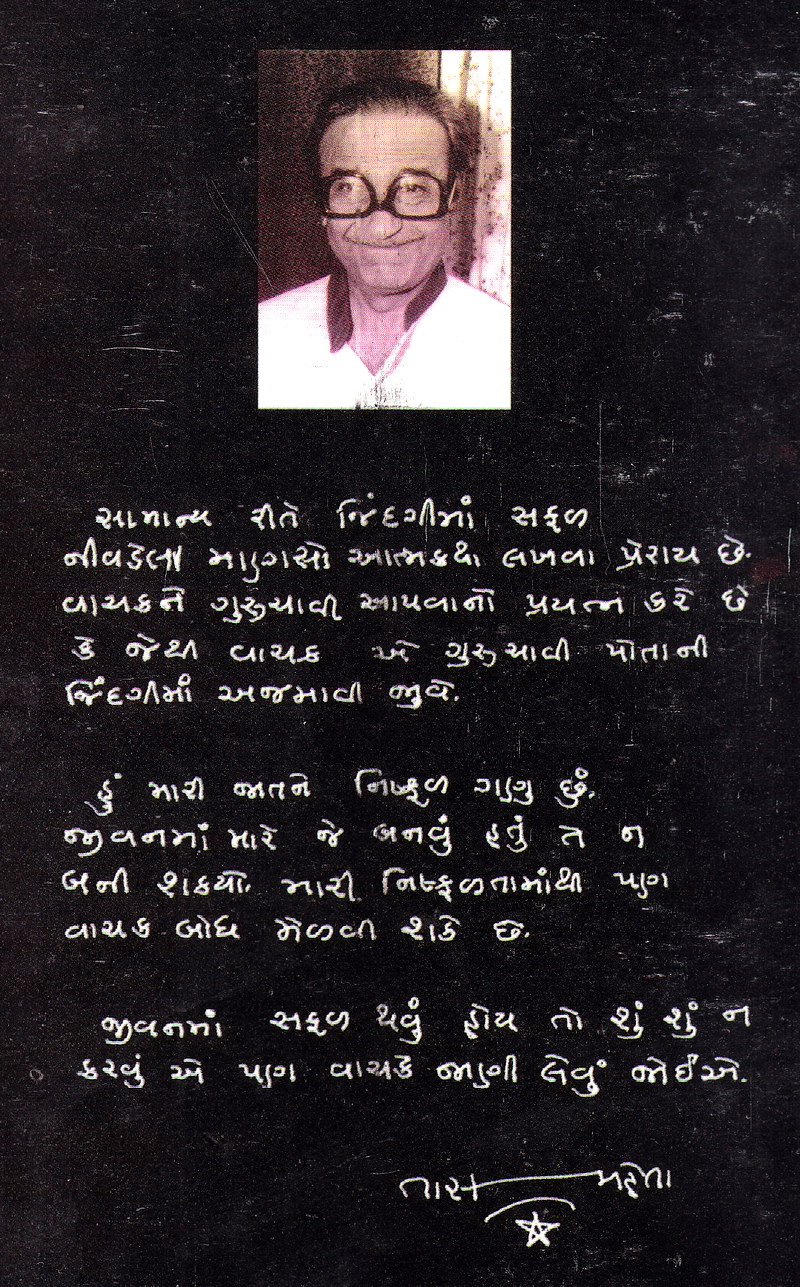 સામાન્ય રીતે જિંદગીમાં સફળ
નીવડેલા માણસો આત્મકથા લખવા પ્રેરાય છે.
વાચકને ગુરુચાવી આપવાનો પ્રયત્ન કરે છે
કે જેથી વાચક એ ગુરુચાવી પોતાની
જિંદગીમાં અજમાવી જુવે.
હું મારી જાતને નિષ્ફળ ગણુ છું.
જીવનમાં મારે જે બનવું હતું તે ન
બની શકયો. મારી નિષ્ફળતામાંથી પણ
વાચક બોધ મેળવી શકે છે.
જીવનમાં સફળ થવું હોય તો શું શું ન
કરવું એ પણ વાચકે જાણી લેવું જોઈએ.
તારક મહેતા